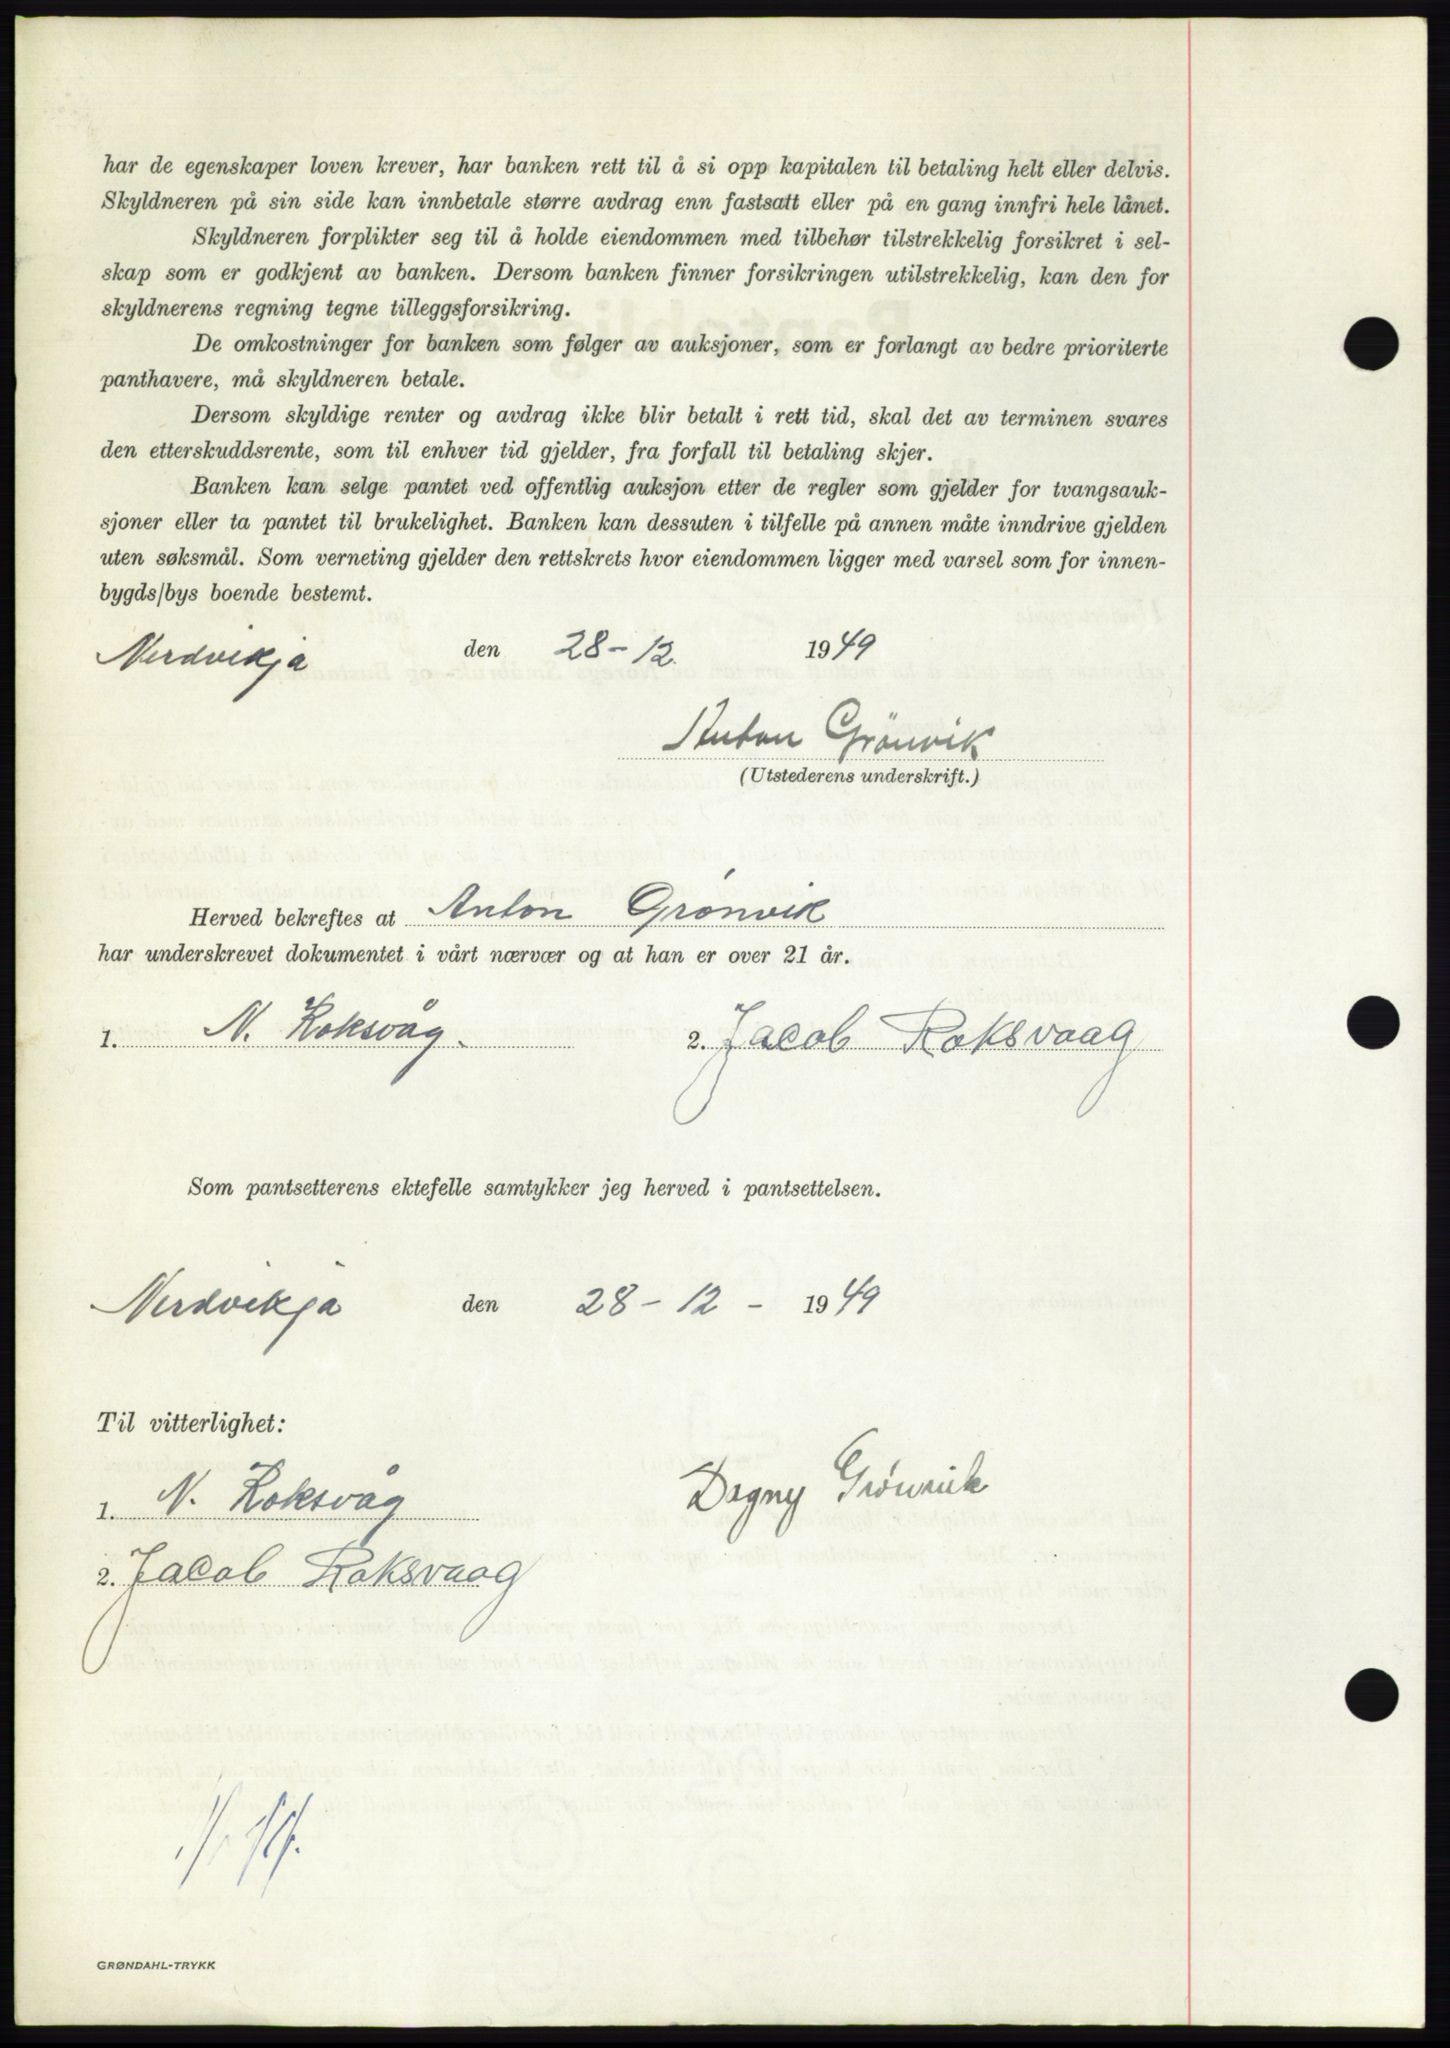 har de egenskaper loven krever, har banken rett til å si opp kapitalen til betaling helt eller delvis.
Skyldneren på sin side kan innbetale større avdrag enn fastsatt eller på en gang innfri hele lånet.
Skyldneren forplikter seg til å holde eiendommen med tilbehør tilstrekkelig forsikret i sel-
skap som er godkjent av banken. Dersom banken finner forsikringen utilstrekkelig, kan den for
skyldnerens regning tegne tilleggsforsikring.
De omkostninger for banken som følger av auksjoner, som er forlangt av bedre prioriterte
panthavere, må skyldneren betale.
Dersom skyldige renter og avdrag ikke blir betalt i rett tid, skal det av terminen svares
den etterskuddsrente, som til enhver tid gjelder, fra forfall til betaling skjer.
Banken kan selge pantet ved offentlig auksjon etter de regler som gjelder for tvangsauk-
sjoner eller ta pantet til brukelighet. Banken kan dessuten i tilfelle på annen måte inndrive gjelden
uten søksmål. Som verneting gjelder den rettskrets hvor eiendommen ligger med varsel som for innen-
bygds/bys boende bestemt.
Nerdvikja den 28-12. 1949
Anton Grönvik
(Utstederens underskrift.)
Herved bekreftes at Anton Grønvik
har underskrevet dokumentet i vårt nærvær og at han er over 21 år.
1. N. Roksvåg. 2. Jacob Roksvaag
Som pantsetterens ektefelle samtykker jeg herved i pantsettelsen.
Nerdvikja den 28-12- 1949
Til vitterlighet:
1. N. Roksvåg Dagny Grønvik
2. Jacob Roksvaag
GRØNDAHL-TRYKK